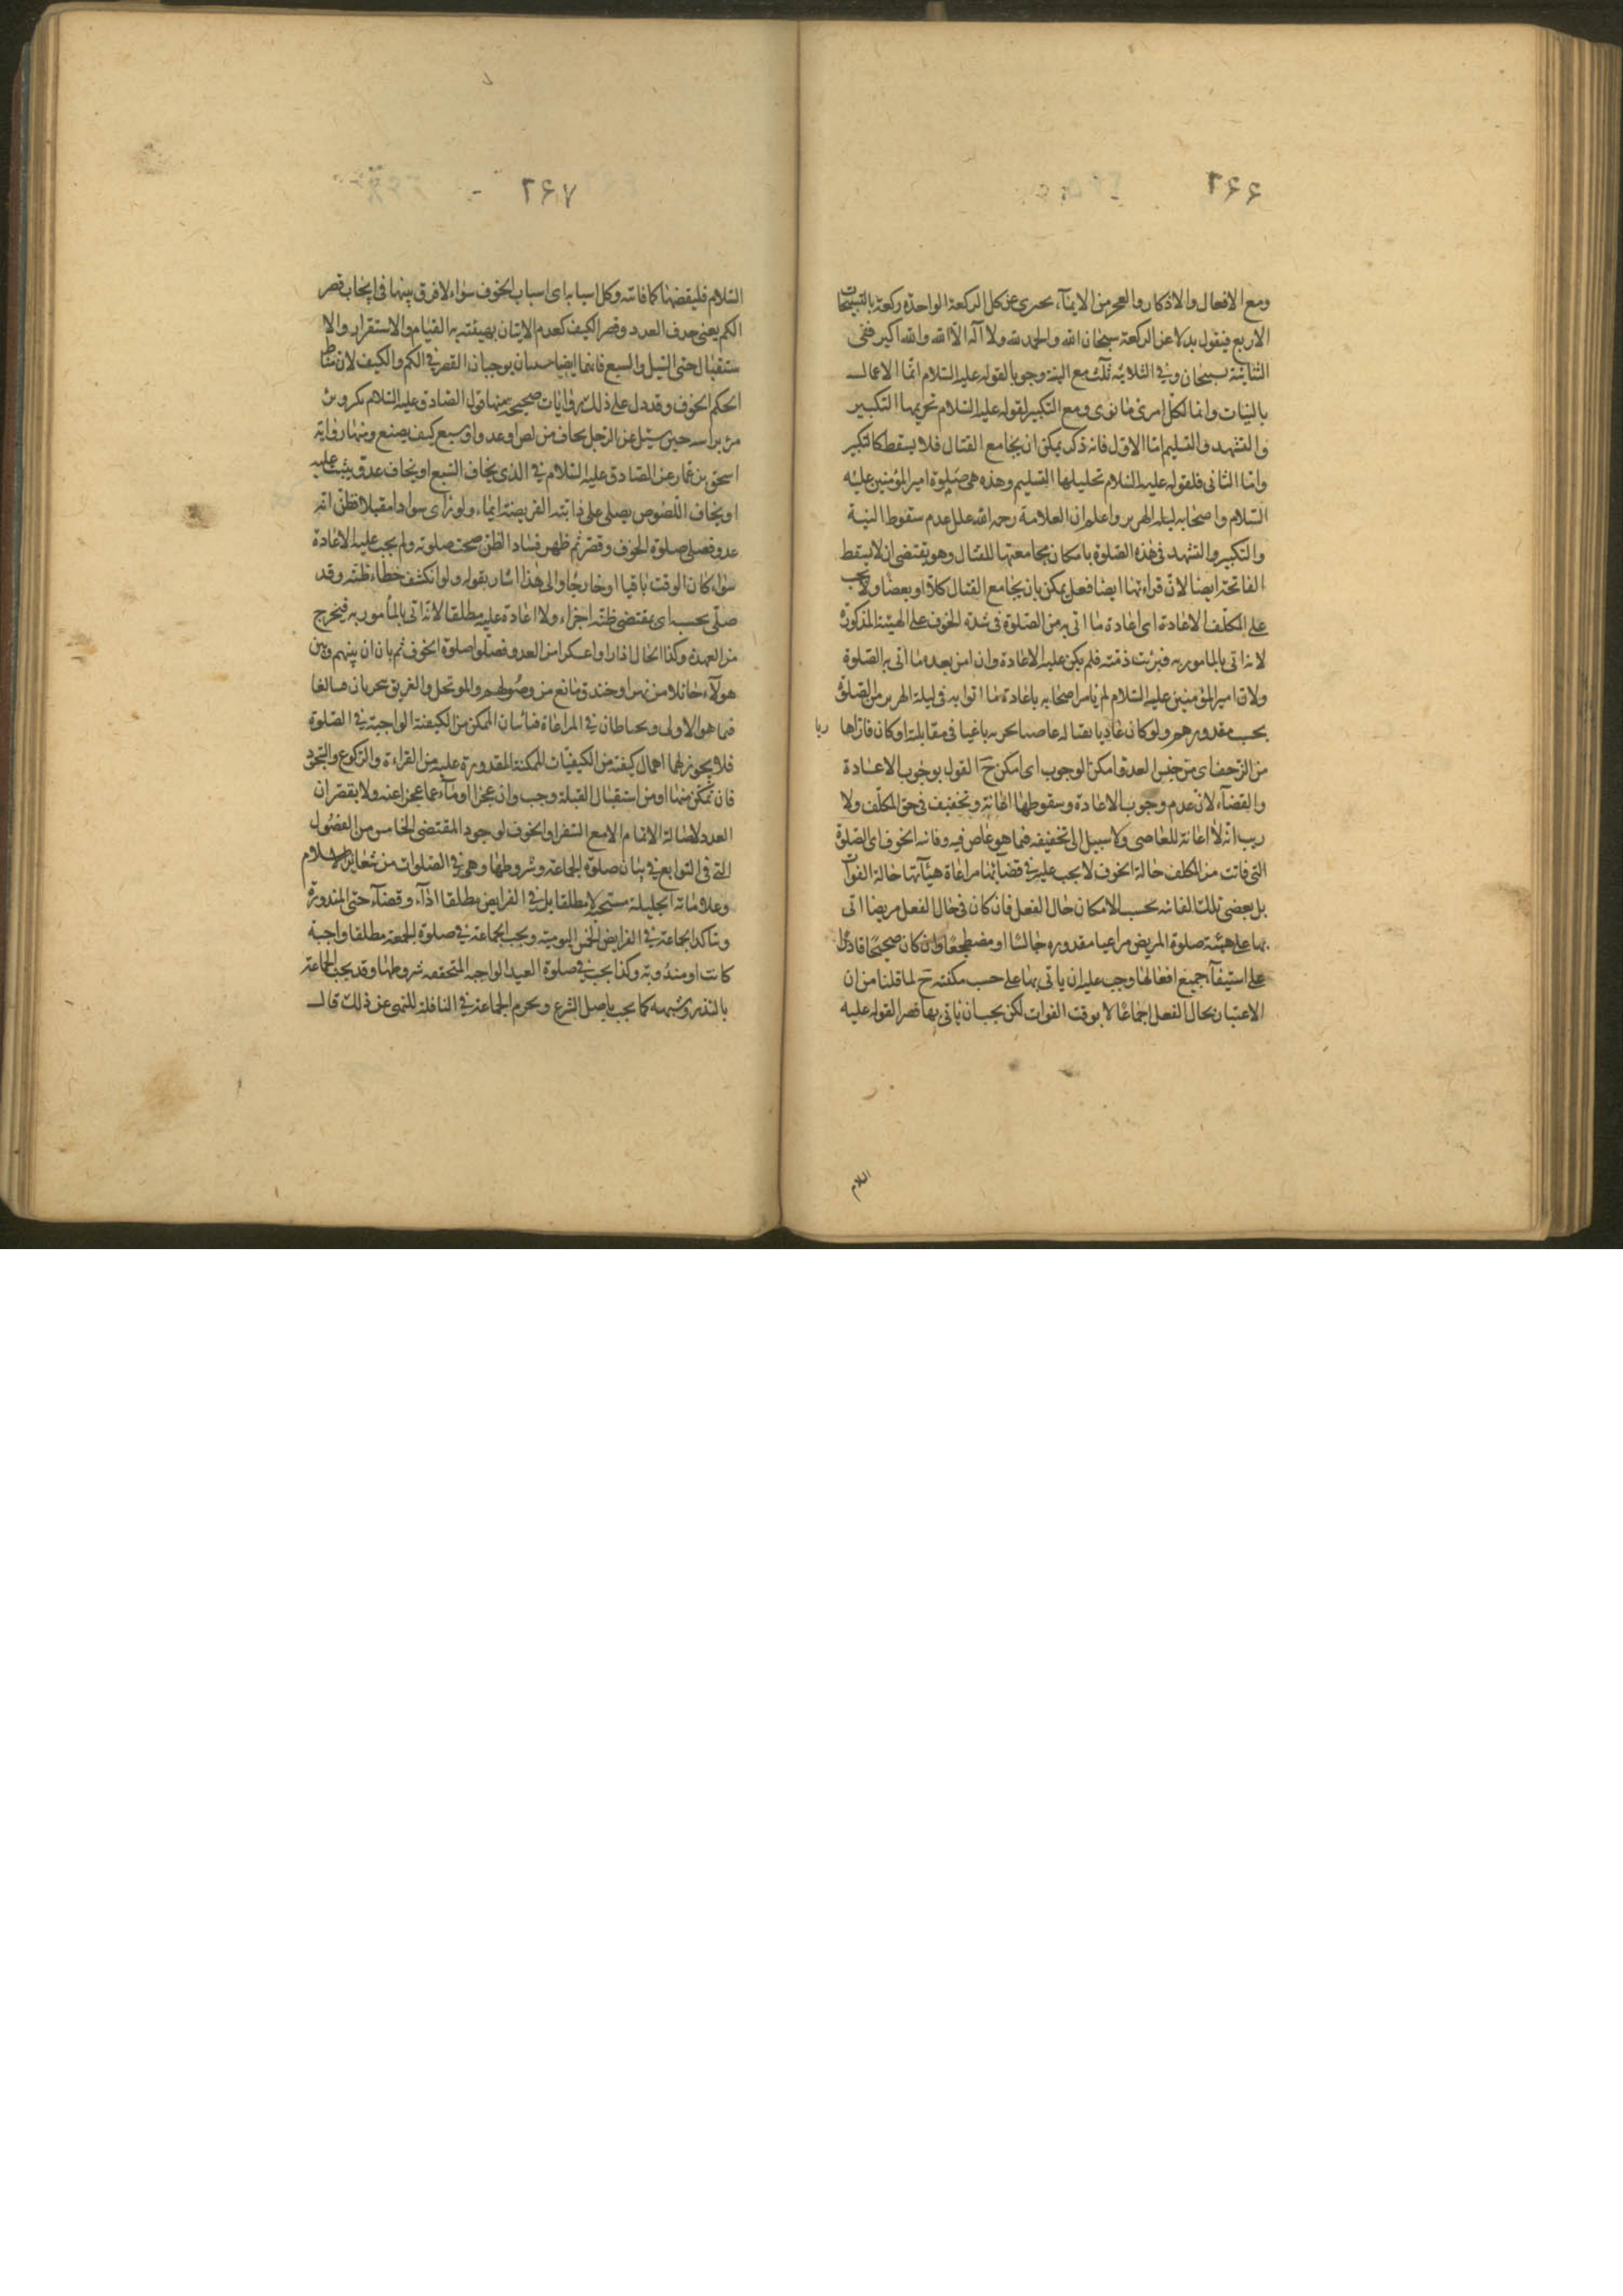 ۲۶۶
ومع الافعال والاذكار والعجز من الايمآء يجزى عن كل الركعة الواحدة ركعة بالتسبيحات
الاربع فيقول بدلا عن الركعة سبحان الله والحمد لله ولا اله الا الله والله اكبر ففى
الثنائية تسبيحان وفى الثلاثية ثلث مع النية وجوبا لقوله عليه السلام انما الاعمال
بالنيات وانما لكل امرئ ما نوى ومع التكبير لقوله عليه السلام تحريمها التكبير
والتشهد والتسليم اما الاول فانه ذكر يمكن ان يجامع القتال فلا يسقط كالتكبير
واما الثانى فلقوله عليه السلام تحليلها التسليم وهذه هى صلوة امير المؤمنين عليه
السلام واصحابه ليلة الهرير واعلم ان العلامة رحمه الله علل عدم سقوط النية
والتكبير والتشهد فى هذه الصلوة بامكان مجامعتها للقتال وهو يقتضى ان لا يسقط
الفاتحة ايضا لانّ قراءتها ايضا فعل يمكن بان يجامع القتال كلا او بعضا ولا يجب
على المكلف الاعادة اى اعادة ما اتى به من الصلوة فى شدة الخوف على الهيئة المذكورة
لانه اتى بالمامور به فبرئت ذمته فلم يكن عليه الاعادة وان امن بعد ما اتى به الصلوة
ولان امير المؤمنين عليه السلام لم يامر اصحابه باعادة ما اتوا به فى ليلة الهرير من الصلوة
بحسب مقدورهم ولو كان عاديا بقتاله عاصيا بحربه باغيا فى مقابلته او كان فارّا ها ربا
من الزحف اى من جيش العدو امكن الوجوب اى امكن ح القول بوجوب الاعادة
والقضآء لانّ عدم وجوب الاعادة وسقوطها اعانة وتخفيف فى حق المكلف ولا
ريب انه لا اعانة للعاصى ولا سبيل الى تخفيفه فيما هو عاص فيه وفائتة الخوف اى الصلوة
التى فاتت من المكلف حالة الخوف لا يجب عليه فى قضائها مراعاة هيئاتها حالة الفوات
بل يقضى تلك الفائتة بحسب الامكان حال الفعل فان كان فى حال الفعل مريضا اتى
بها على هيئة صلوة المريض مراعيا مقدوره جالسا او مضطجعا وان كان صحيحا قادرا
على استيفآء جميع افعالها وجب عليه ان ياتى بها على حسب مكنته ح لما قلنا من ان
الاعتبار بحال الفعل اجماعا لا بوقت الفوات لكن يجب ان ياتى بها قصرا لقوله عليه
السلام
۲۶۷
السلام فليقضها كما فاتته وكل اسبابه اى اسباب الخوف سواء لا فرق بينها فى ايجاب قصر
الكم يعنى حذف العدد وقصر الكيف كعدم الاتيان بهيئته به القيام والاستقرار والا
ستقبال حتى السيل والسبع فانهما ايضا سببان يوجبان القصر فى الكم والكيف لان مناط
الحكم الخوف وقد دل على ذلك روايات صحيحة منها قول الصادق عليه السلام
حين سئل عن الرجل يخاف من لص او عدو او سبع كيف يصنع ومنها رواية
اسحق بن عمار عن الصادق عليه السلام فى الذى يخاف السبع او يخاف عدوّ يثب عليه
او يخاف اللصوص يصلى على دابته الفريضة ايماء ولو راى سوادا مقبلا فظنّ انه
عدو فصلى صلوة الخوف وقصر ثم ظهر فساد الظن صحت صلوته ولم يجب عليه الاعادة
سواء كان الوقت باقيا او خارجا والى هذا اشار بقوله ولو انكشف خطاء ظنه وقد
صلى بحسبه اى بمقتضى ظنه اجزاء ولا اعادة عليه مطلقا لانه اتى بالمأمور به فيخرج
من العهدة وكذا الحال اذا راوا عسكرا من العدو فصلوا صلوة الخوف ثم بان ان بينهم وبين
هولآء حائلا من نهر او خندق مانع من وصولهم والموتحل والغريق بحسب
فما هو الاولى ويحتاطان فى المراعاة فياتيان الممكن من الكيفية الواجبة فى الصلوة
فلا يجوز لهما اهمال كيفية من الكيفيات الممكنة المقدورة عليه من القراءة والركوع والسجود
فان تمكن منها او من استقبال القبلة وجب وان عجزا اومآء عما عجزا عنه ولا يقصران
العدد لاصالة الاتمام الا مع السفر او الخوف لوجود المقتضى الخامس من الفصول
التى فى التوابع فى بيان صلوة الجماعة وشروطها وهى فى الصلوات من شعاير الاسلام
وعلاماته الجليلة مستحبة لا مطلقا بل فى الفرايض مطلقا اداءً وقضآء حتى المنذورة
وتتاكد الجماعة فى الفرايض الخمس اليومية ويجب الجماعة فى صلوة الجمعة مطلقا واجبة
كانت او مندوبة وكذا يجب فى صلوة العيد الواجبة المتحققة شروطها وقد يجب الجماعة
بالنذر وشبهه كما يجب باصل الشرع ويحرم الجماعة فى النافلة للنهى عن ذلك قال